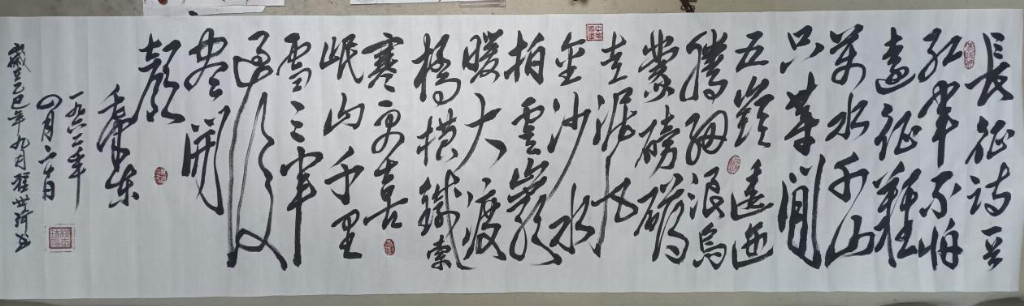 長征诗一首
红軍不怕
遠征難
萬水千山
只等閒
五嶺逶迤
騰細浪烏
蒙磅礴
走泥丸
金沙水
拍雲崖
暖大渡
橋橫鐵索
寒更喜
岷山千里
雪三軍
過後
盡開
顏
毛澤東
一九六二年
四月二十日
歲乙巳年九月